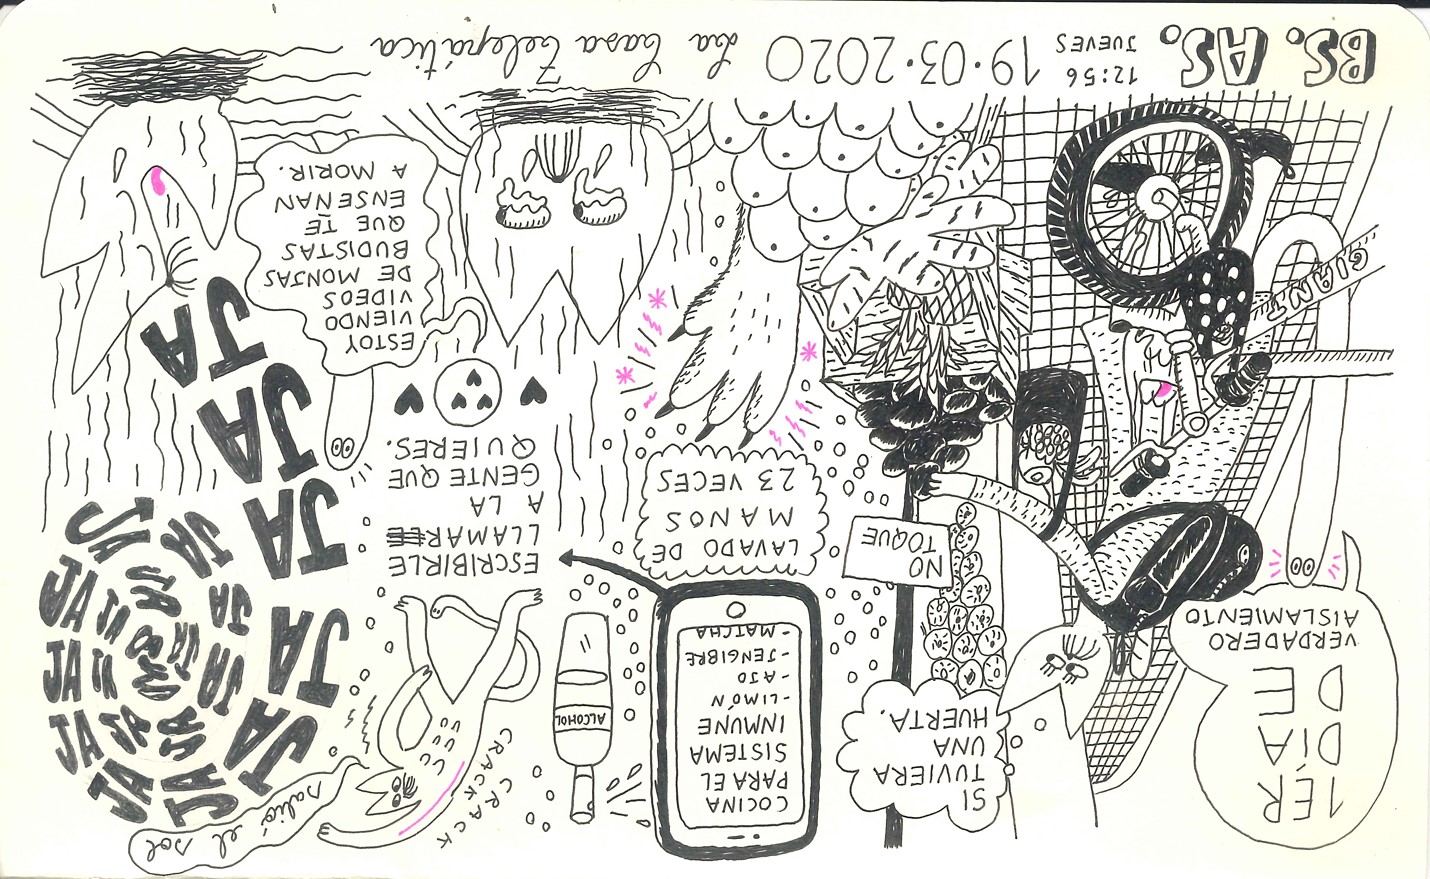 1ÉR
DÍA
DE
VERDADERO
AISLAMIENTO
SI
TUVIERA
UNA
HUERTA.
COCINA
PARA EL
SISTEMA
INMUNE
- LIMÓN
- AJO
- JENGIBRE
- MATCHA
ALCOHOL
CRACK
CRACK
salió el sol
NO
TOQUE
LAVADO DE
MANOS
23 VECES
ESCRIBIRLE
LLAMAR
A LA
GENTE QUE
QUIERES.
JA JA JA JA JA JA JA JA JA JA JA JA JA JA JA JA JA JA JA JA
JA
JA
JA
JA
JA
JA
GIANT
ESTOY
VIENDO
VIDEOS
DE MONJAS
BUDISTAS
QUE TE
ENSEÑAN
A MORIR.
BS. AS.
12:56
JUEVES
19·03·2020
La Casa Telepática